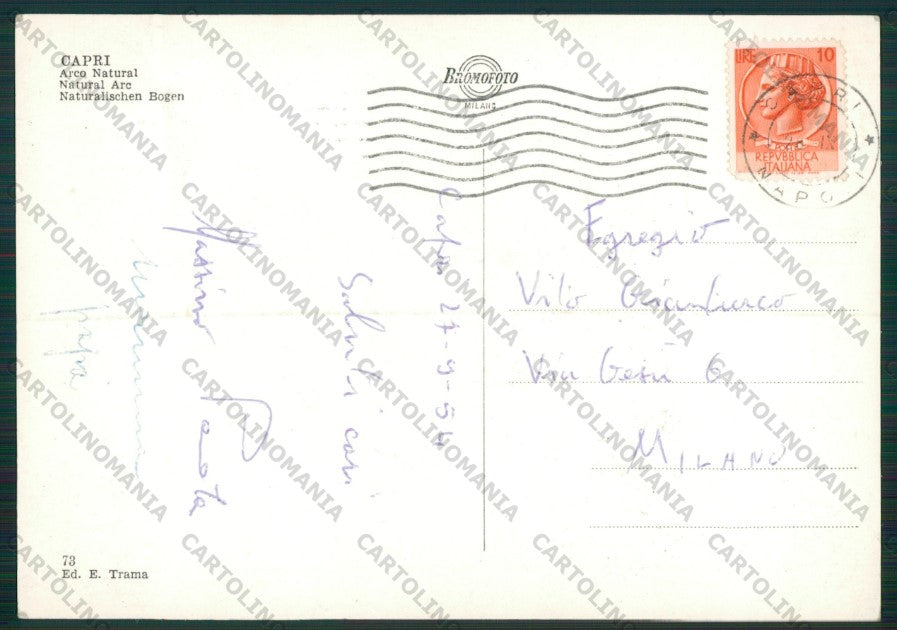 CAPRI
Arco Natural
Natural Arc
Naturalischen Bogen
BROMOFOTO
MILANO
LIRE 10
REPVBBLICA
ITALIANA
NAPOLI
Egregio
Vito Gianfranco
Via Gesù 6
MILANO
Capri 27-9-54
Saluti cari
Massimo
73
Ed. E. Trama
CARTOLINOMANIA